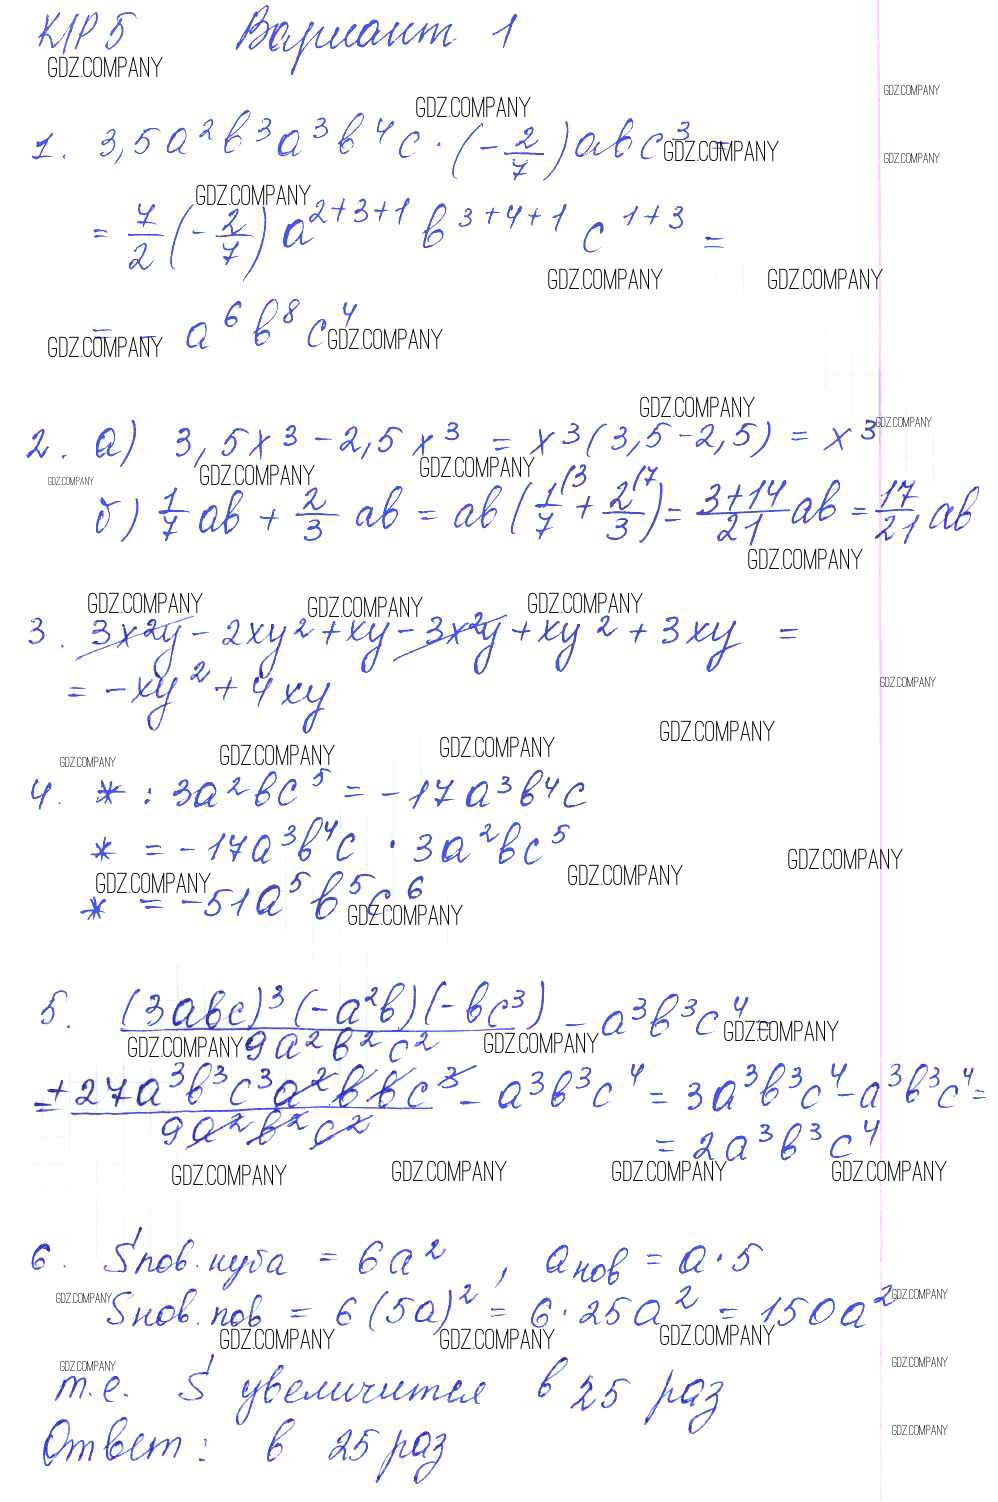 К/Р 5 Вариант 1
GDZ.COMPANY
GDZ.COMPANY GDZ.COMPANY
1. 3,5a²b³a³b⁴c · (-2/7)abc³ =
GDZ.COMPANY GDZ.COMPANY
GDZ.COMPANY
= 7/2 (-2/7) a²⁺³⁺¹ b³⁺⁴⁺¹ c¹⁺³ =
GDZ.COMPANY GDZ.COMPANY
= - a⁶b⁸c⁴
GDZ.COMPANY GDZ.COMPANY
GDZ.COMPANY GDZ.COMPANY
2. а) 3,5x³ - 2,5x³ = x³(3,5-2,5) = x³
GDZ.COMPANY GDZ.COMPANY GDZ.COMPANY
б) 1/7 ab + 2/3 ab = ab(1/7⁽³ + 2/3⁽⁷) = (3+14)/21 ab = 17/21 ab
GDZ.COMPANY
GDZ.COMPANY GDZ.COMPANY GDZ.COMPANY
3. 3x²y - 2xy² + xy - 3x²y + xy² + 3xy =
= -xy² + 4xy
GDZ.COMPANY
GDZ.COMPANY GDZ.COMPANY GDZ.COMPANY GDZ.COMPANY
4. * : 3a²bc⁵ = -17a³b⁴c
* = -17a³b⁴c · 3a²bc⁵
GDZ.COMPANY GDZ.COMPANY GDZ.COMPANY
* = -51a⁵b⁵c⁶
GDZ.COMPANY
5. (3abc)³(-a²b)(-bc³) / 9a²b²c² - a³b³c⁴ =
GDZ.COMPANY GDZ.COMPANY GDZ.COMPANY
= +27a³b³c³a²bbc³ / 9a²b²c² - a³b³c⁴ = 3a³b³c⁴ - a³b³c⁴ =
= 2a³b³c⁴
GDZ.COMPANY GDZ.COMPANY GDZ.COMPANY GDZ.COMPANY
6. Sпов.куба = 6a², aнов = a·5
GDZ.COMPANY GDZ.COMPANY
Sнов.пов = 6(5a)² = 6·25a² = 150a²
GDZ.COMPANY GDZ.COMPANY GDZ.COMPANY
GDZ.COMPANY GDZ.COMPANY
т.е. S увеличится в 25 раз
Ответ: в 25 раз
GDZ.COMPANY